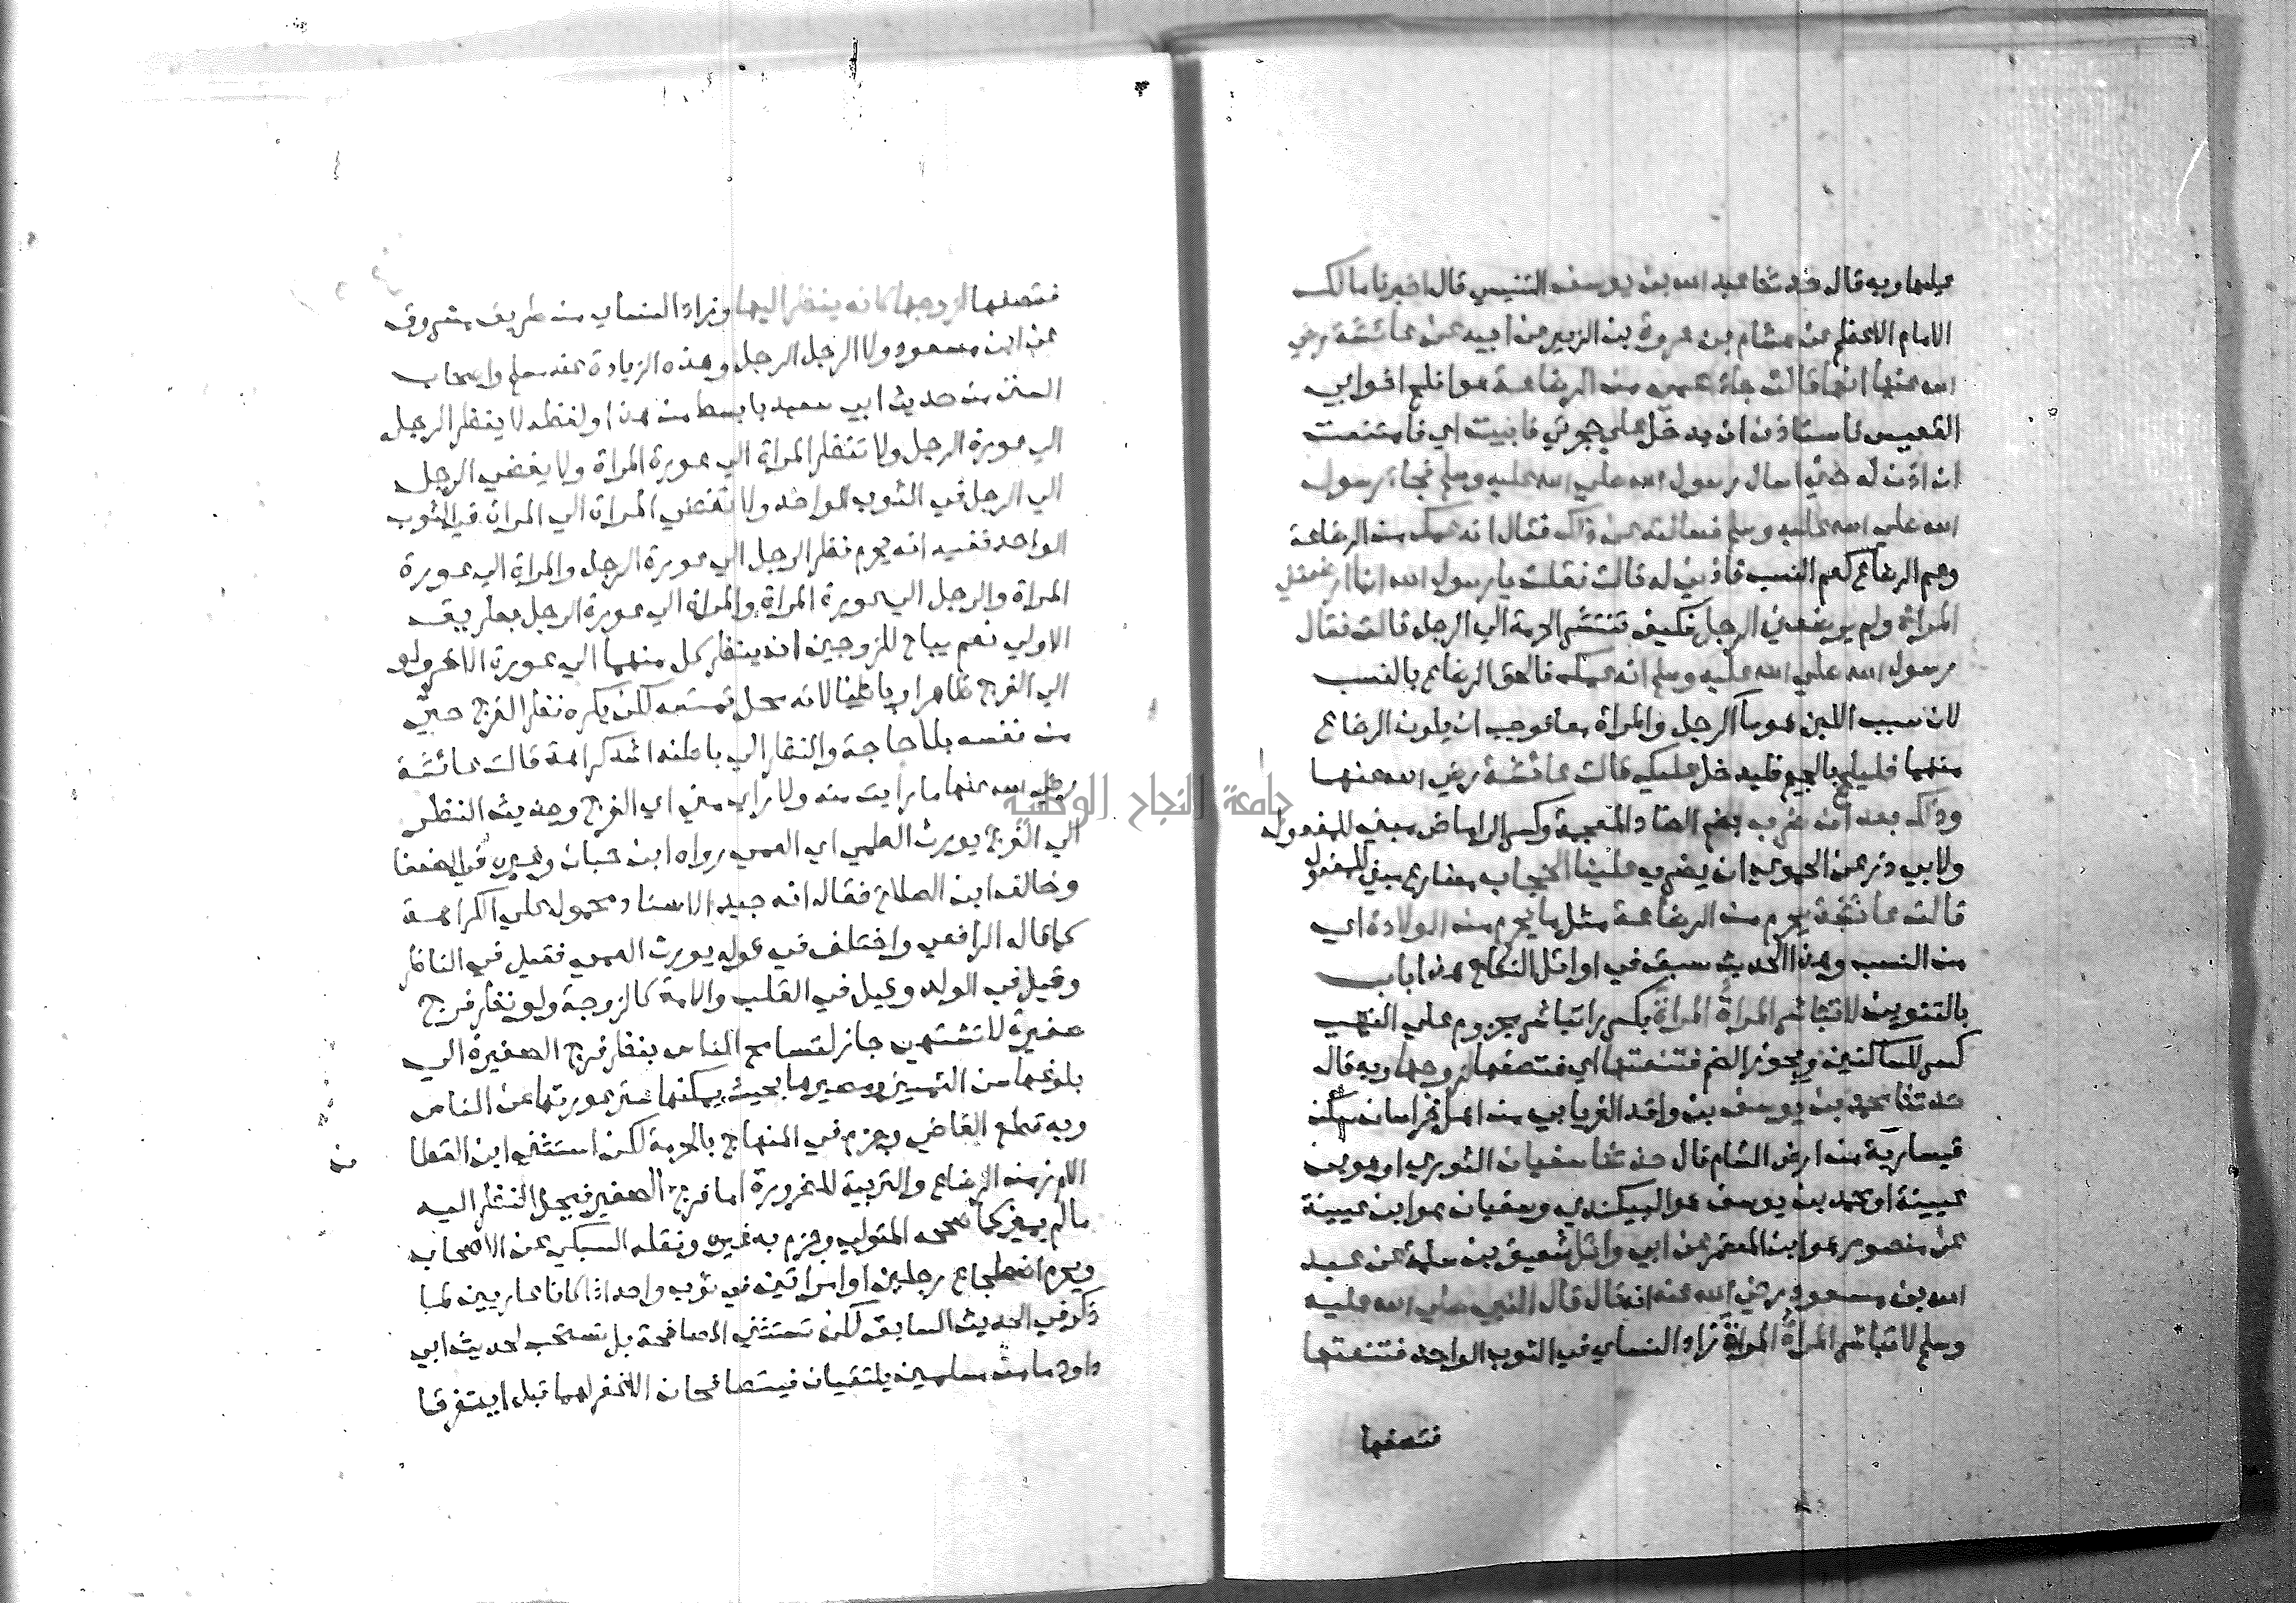 عليها وبه قال حدثنا عبد الله بن يوسف التنيسي قال اخبرنا مالك
الامام الاعظم عن هشام بن عروة بن الزبير عن ابيه عن عائشة رضي
الله عنها انها قالت جاء عمي من الرضاعة هو افلح اخو ابي
القعيس فاستاذن ان يدخل علي حجرتي فابيت اي فامتنعت
ان اذن له حتي اسال رسول الله صلي الله عليه وسلم فجاء رسول
الله صلي الله عليه وسلم فسالته عن ذلك فقال انه عمك من الرضاعة
وعم الرضاع كعم النسب فاذني له قالت فقلت يا رسول الله انما ارضعتني
المراة ولم يرضعني الرجل فكيف تنتشر الحرمة الي الرجل قالت فقال
رسول الله صلي الله عليه وسلم انه عمك فالحق الرضاع بالنسب
لان سبب اللبن هو ماء الرجل والمراة معا فوجب ان يكون الرضاع
منهما فليلج بالجيم فليدخل عليك قالت عائشة رضي الله عنها
وذلك بعد ان ضرب بضم الضاد المعجمة وكسر الراء ماض مبني للمفعول
ولابي ذر عن الحموي ان يضرب علينا الحجاب مضارع مبني للمفعول
قالت عائشة يحرم من الرضاعة مثل ما يحرم من الولادة اي
من النسب وهذا الحديث سبق في اوائل النكاح هذا باب
بالتنوين لا تباشر المراة المراة بكسر را تباشر مجزوم علي النهي
كسر للساكنين ويجوز الضم فتنعتها اي فتصفها لزوجها وبه قال
حدثنا محمد بن يوسف بن واقد الفريابي من اهل خراسان سكن
قيسارية من ارض الشام قال حدثنا سفيان الثوري او هو بن
عيينة او محمد بن يوسف هو البيكندي وسفيان هو ابن عيينة
عن منصور هو ابن المعتمر عن ابي وائل شقيق بن سلمة عن عبد
الله بن مسعود رضي الله عنه انه قال قال النبي صلي الله عليه
وسلم لا تباشر المراة المراة زاد النساي في الثوب الواحد فتنعتها
فتصفها
فتصفها لزوجها كانه ينظر اليها وزاد النساي من طريق مسروق
عن ابن مسعود ولا الرجل الرجل وهذه الزيادة عند مسلم واصحاب
السنن من حديث ابي سعيد بابسط من هذا ولفظه لا ينظر الرجل
الي عورة الرجل ولا تنظر المراة الي عورة المراة ولا يفضي الرجل
الي الرجل في الثوب الواحد ولا تفضي المراة الي المراة في الثوب
الواحد ففيه انه يحرم نظر الرجل الي عورة الرجل والمراة الي عورة
المراة والرجل الي عورة المراة والمراة الي عورة الرجل بطريق
الاولي نعم يباح للزوجين ان ينظر كل منهما الي عورة الاخر ولو
الي الفرج ظاهرا وباطنا لانه محل تمتعه لكن يكره نظر الفرج حتي
من نفسه بلا حاجة والنظر الي باطنه اشد كراهة قالت عائشة
رضي الله عنها ما رايت منه ولا راي مني اي الفرج وحديث النظر
الي الفرج يورث الطمس اي العمي رواه ابن حبان وغيره في الضعفا
وخالف ابن الصلاح فقال انه جيد الاسناد محمول علي الكراهة
كما قاله الرافعي واختلف في قوله يورث العمي فقيل في الناظر
وقيل في الولد وقيل في القلب والامة كالزوجة ولو نظر فرج
صغيرة لا تشتهي جاز لتسامح الناس بنظر فرج الصغيرة الي
بلوغها سن التمييز ومصيرها بحيث يمكنها ستر عورتها عن الناس
وبه قطع القاضي وجزم في المنهاج بالحرمة لكن استثني ابن القطا
ن
الام زمن الرضاع والتربية للضرورة اما فرج الصغير فيحل النظر اليه
ما لم يميز كما صححه المتولي وجزم به غيره ونقله السبكي عن الاصحاب
ويحرم اضطجاع رجلين او امراتين في ثوب واحد اذا كانا عاريين لما
ذكر في الحديث السابق لكن تستثني المصافحة بل تستحب لحديث ابي
داود ما من مسلمين يلتقيان فيتصافحان الا غفر لهما قبل ان يتفرقا
جامعة النجاح الوطنية